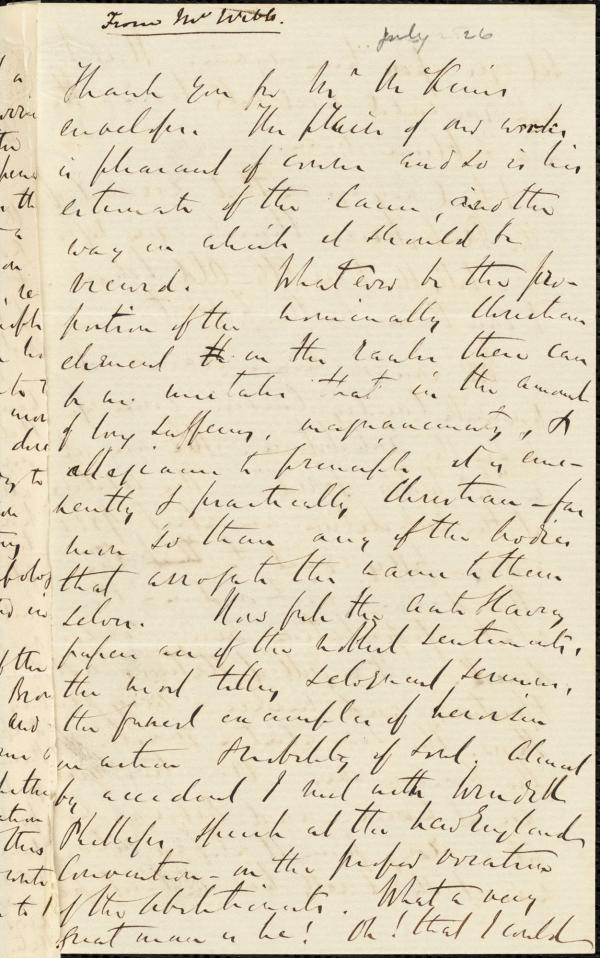 From Mr Webb.
July 26
Thank you for Mr McKim's
envelope. The praise of our works
is pleasant of course and so is his
estimate of the Cause, and the
way in which it should be
viewed. Whatever be the pro-
portion of the nominally Christian
element in the ranks there can
be no mistake that in the amount
of long suffering, magnanimity, &
allegiance to principle it is emi-
nently & practically Christian - far
more so than any of the bodies
that arrogate the name to them
selves. How full the Anti Slavery
papers are of the noblest sentiments,
the most telling eloquent sermons,
the finest examples of heroism
in action & nobility of soul. Almost
by accident I met with Wendell
Phillips speech at the New England
Convention - on the proper vocation
of the Abolitionists. What a very
great man is he! Oh! that I could